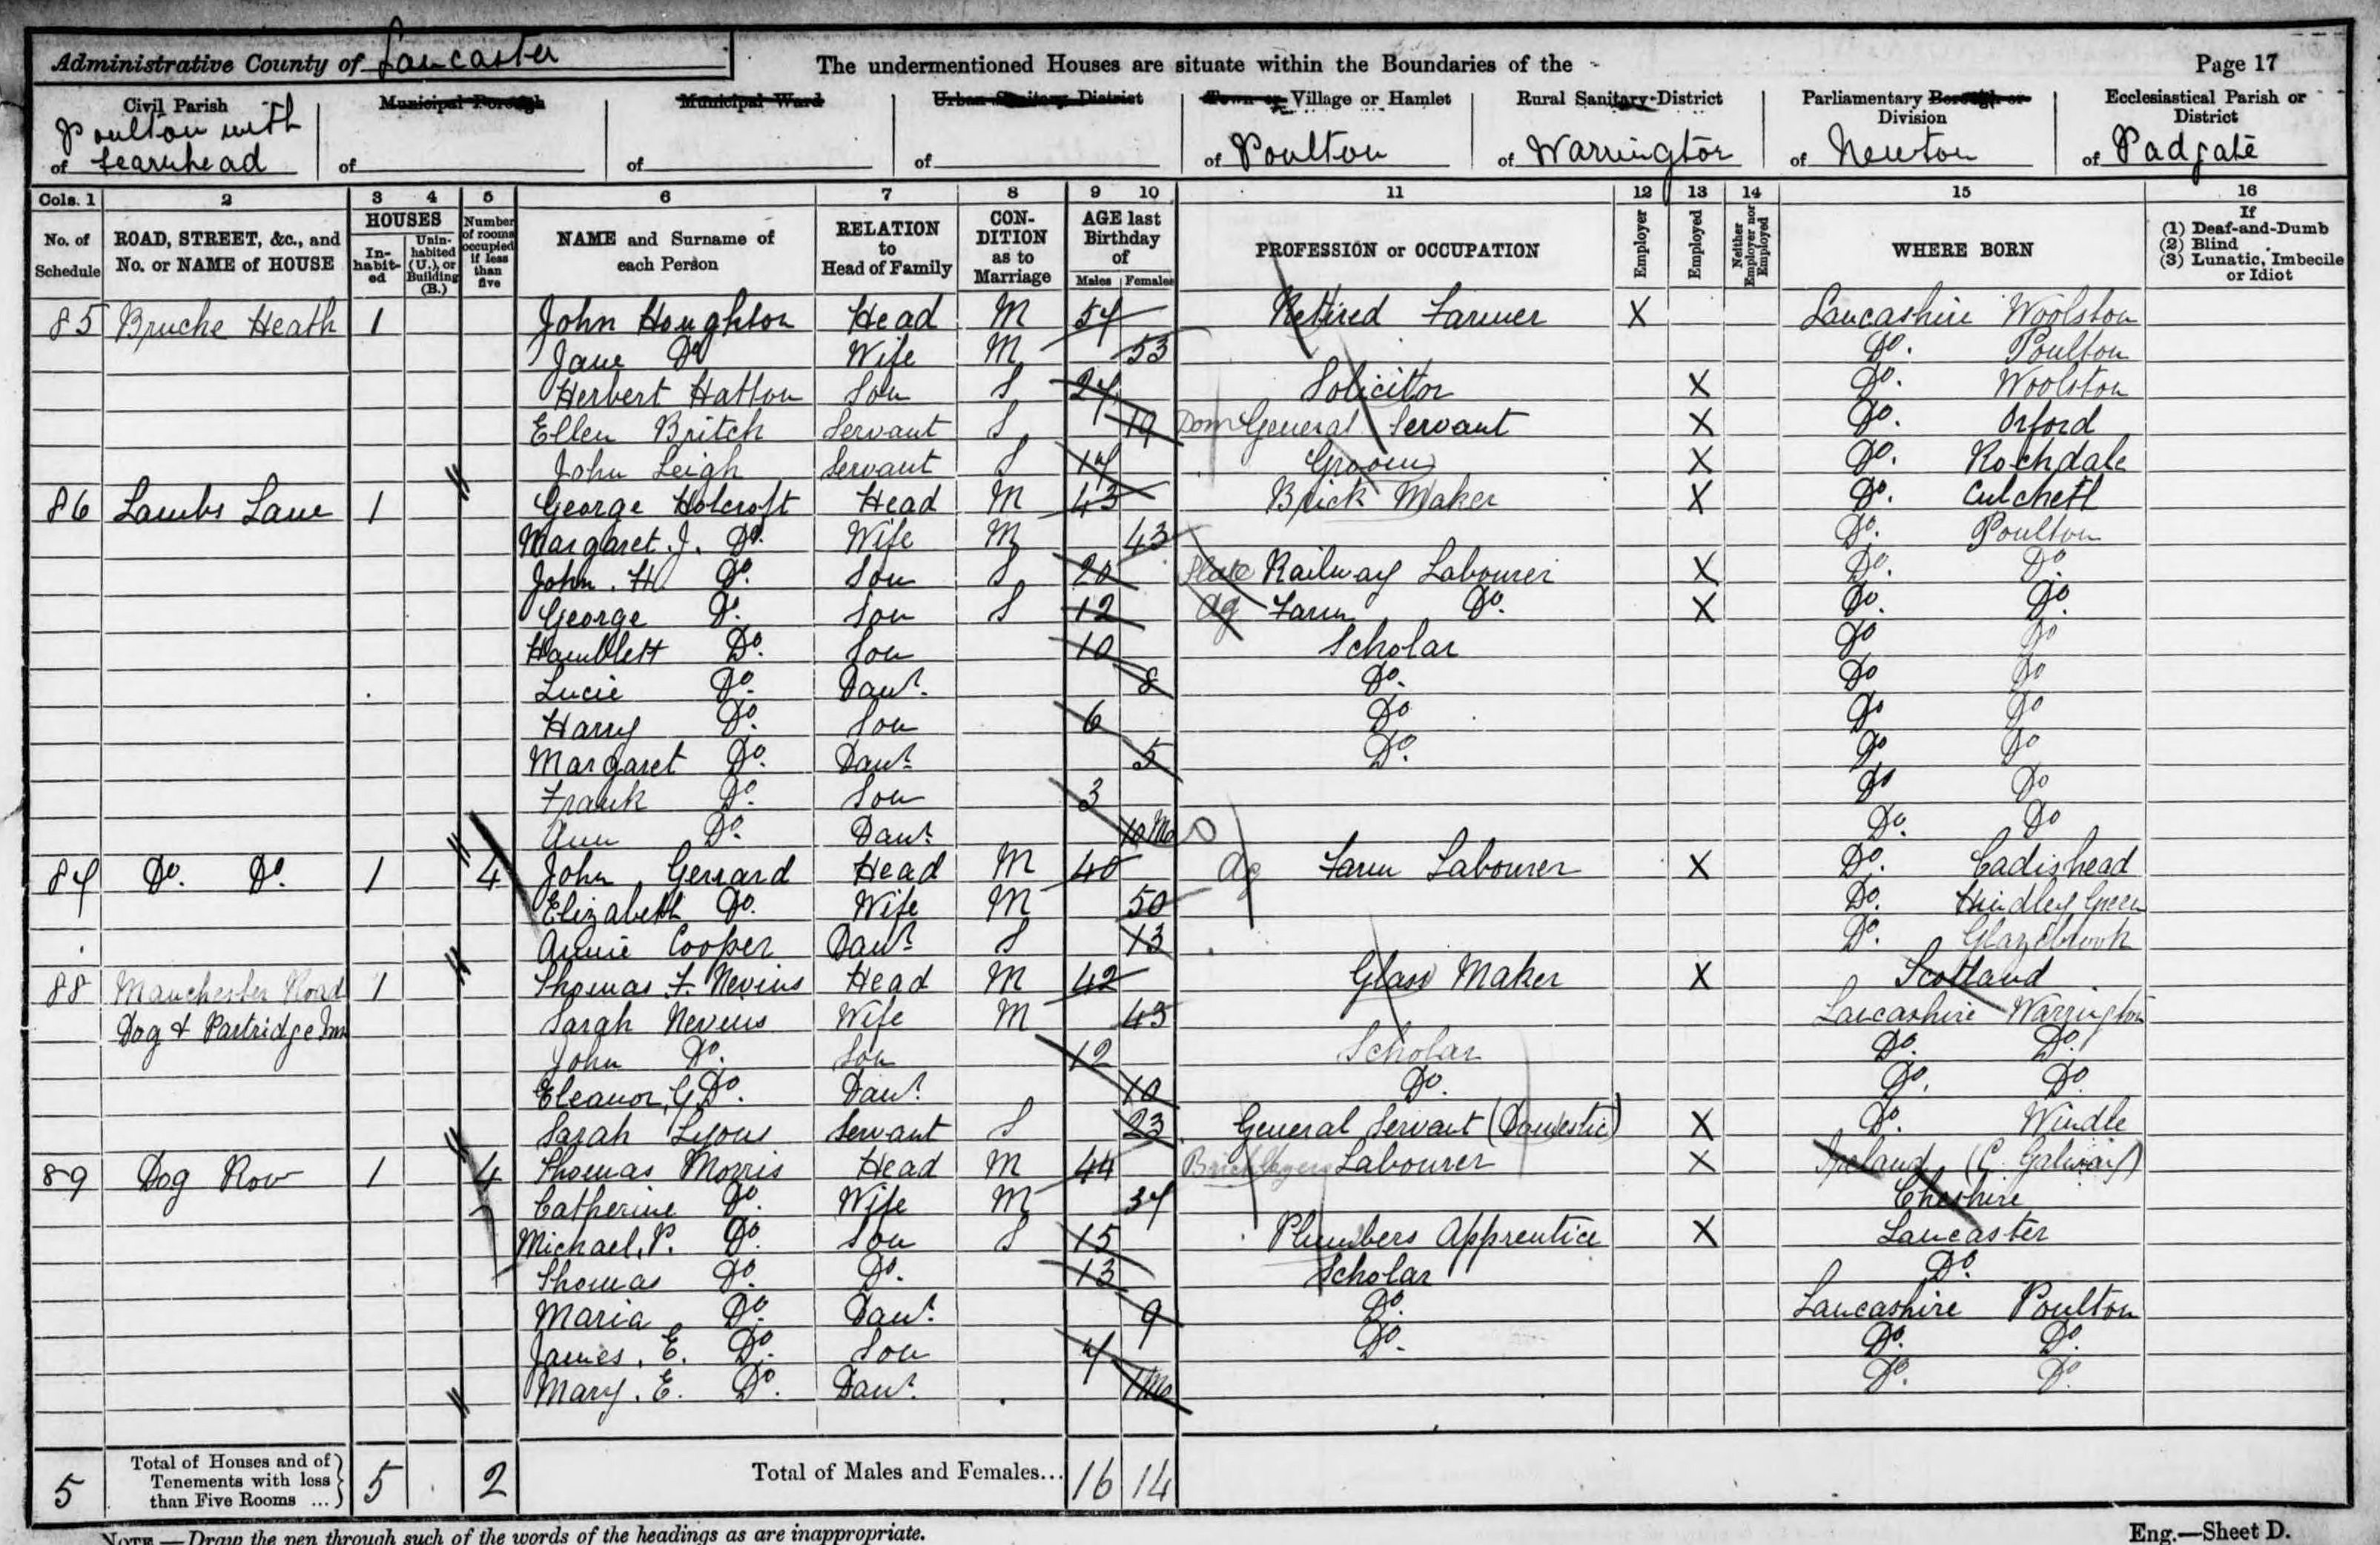 Administrative County of Lancaster The undermentioned Houses are situate within the Boundaries of the Page 17
Civil Parish Municipal Borough Municipal Ward Urban Sanitary District Town or Village or Hamlet Rural Sanitary District Parliamentary Borough or Division Ecclesiastical Parish or District
of Poulton with Fearnhead of of of of Poulton of Warrington of Newton of Padgate
Cols. 1 2 3 4 5 6 7 8 9 10 11 12 13 14 15 16
No. of Schedule ROAD, STREET, &c., and No. or NAME of HOUSE HOUSES In-habit-ed Unin-habited (U.), or Building (B.) Number of rooms occupied if less than five NAME and Surname of each Person RELATION to Head of Family CON-DITION as to Marriage AGE last Birthday of Males Females PROFESSION or OCCUPATION Employer Employed Neither Employer nor Employed WHERE BORN If (1) Deaf-and-Dumb (2) Blind (3) Lunatic, Imbecile or Idiot
85 Bruche Heath 1 John Houghton Head M 57 Retired Farmer X Lancashire Woolston
Jane Do Wife M 53 Do. Poulton
Herbert Hatton Son S 27 Solicitor X Do. Woolston
Ellen Britch Servant S 19 Dom General Servant X Do. Orford
John Leigh Servant S 17 Groom X Do. Rochdale
86 Lambs Lane 1 George Holcroft Head M 43 Brick Maker X Do. Culcheth
Margaret J. Do. Wife M 43 Do. Poulton
John. H. Do. Son S 20 Railway Labourer X Do. Do.
George Do. Son S 12 Ag Farm Do. X Do. Do.
Hamblett Do. Son 10 Scholar Do Do
Lucie Do. Daur. 8 Do. Do Do
Harry Do. Son 6 Do Do Do
Margaret Do. Daur. 5 Do. Do Do
Frank Do. Son 3 Do Do
Ann Do. Daur. 10 Mo Do. Do
87 Do. Do. 1 4 John Gerrard Head M 40 Ag Farm Labourer X Do. Cadishead
Elizabeth Do. Wife M 50 Do. Hindley Green
Annie Cooper Daur. S 13 Do. Glazebrook
88 Manchester Road 1 Thomas F. Nevins Head M 42 Glass Maker X Scotland
Dog & Partridge Inn Sarah Nevens Wife M 43 Lancashire Warrington
John Do. Son 12 Scholar Do. Do.
Eleanor, G. Do. Daur. 10 Do. Do. Do.
Sarah Lyons Servant S 23 General Servant (Domestic) X Do. Windle
89 Dog Row 1 4 Thomas Morris Head M 44 Bricklayers Labourer X Ireland (C. Galway)
Catherine Do. Wife M 37 Cheshire
Michael, P. Do. Son S 15 Plumbers Apprentice X Lancaster
Thomas Do. Do. 13 Scholar Do.
Maria Do. Daur. 9 Do. Lancashire Poulton
James. E. Do. Son 7 Do. Do. Do.
Mary. E. Do. Daur. 1 Mo Do. Do.
5 Total of Houses and of Tenements with less than Five Rooms ... 5 2 Total of Males and Females... 16 14
NOTE.—Draw the pen through such of the words of the headings as are inappropriate. Eng.—Sheet D.